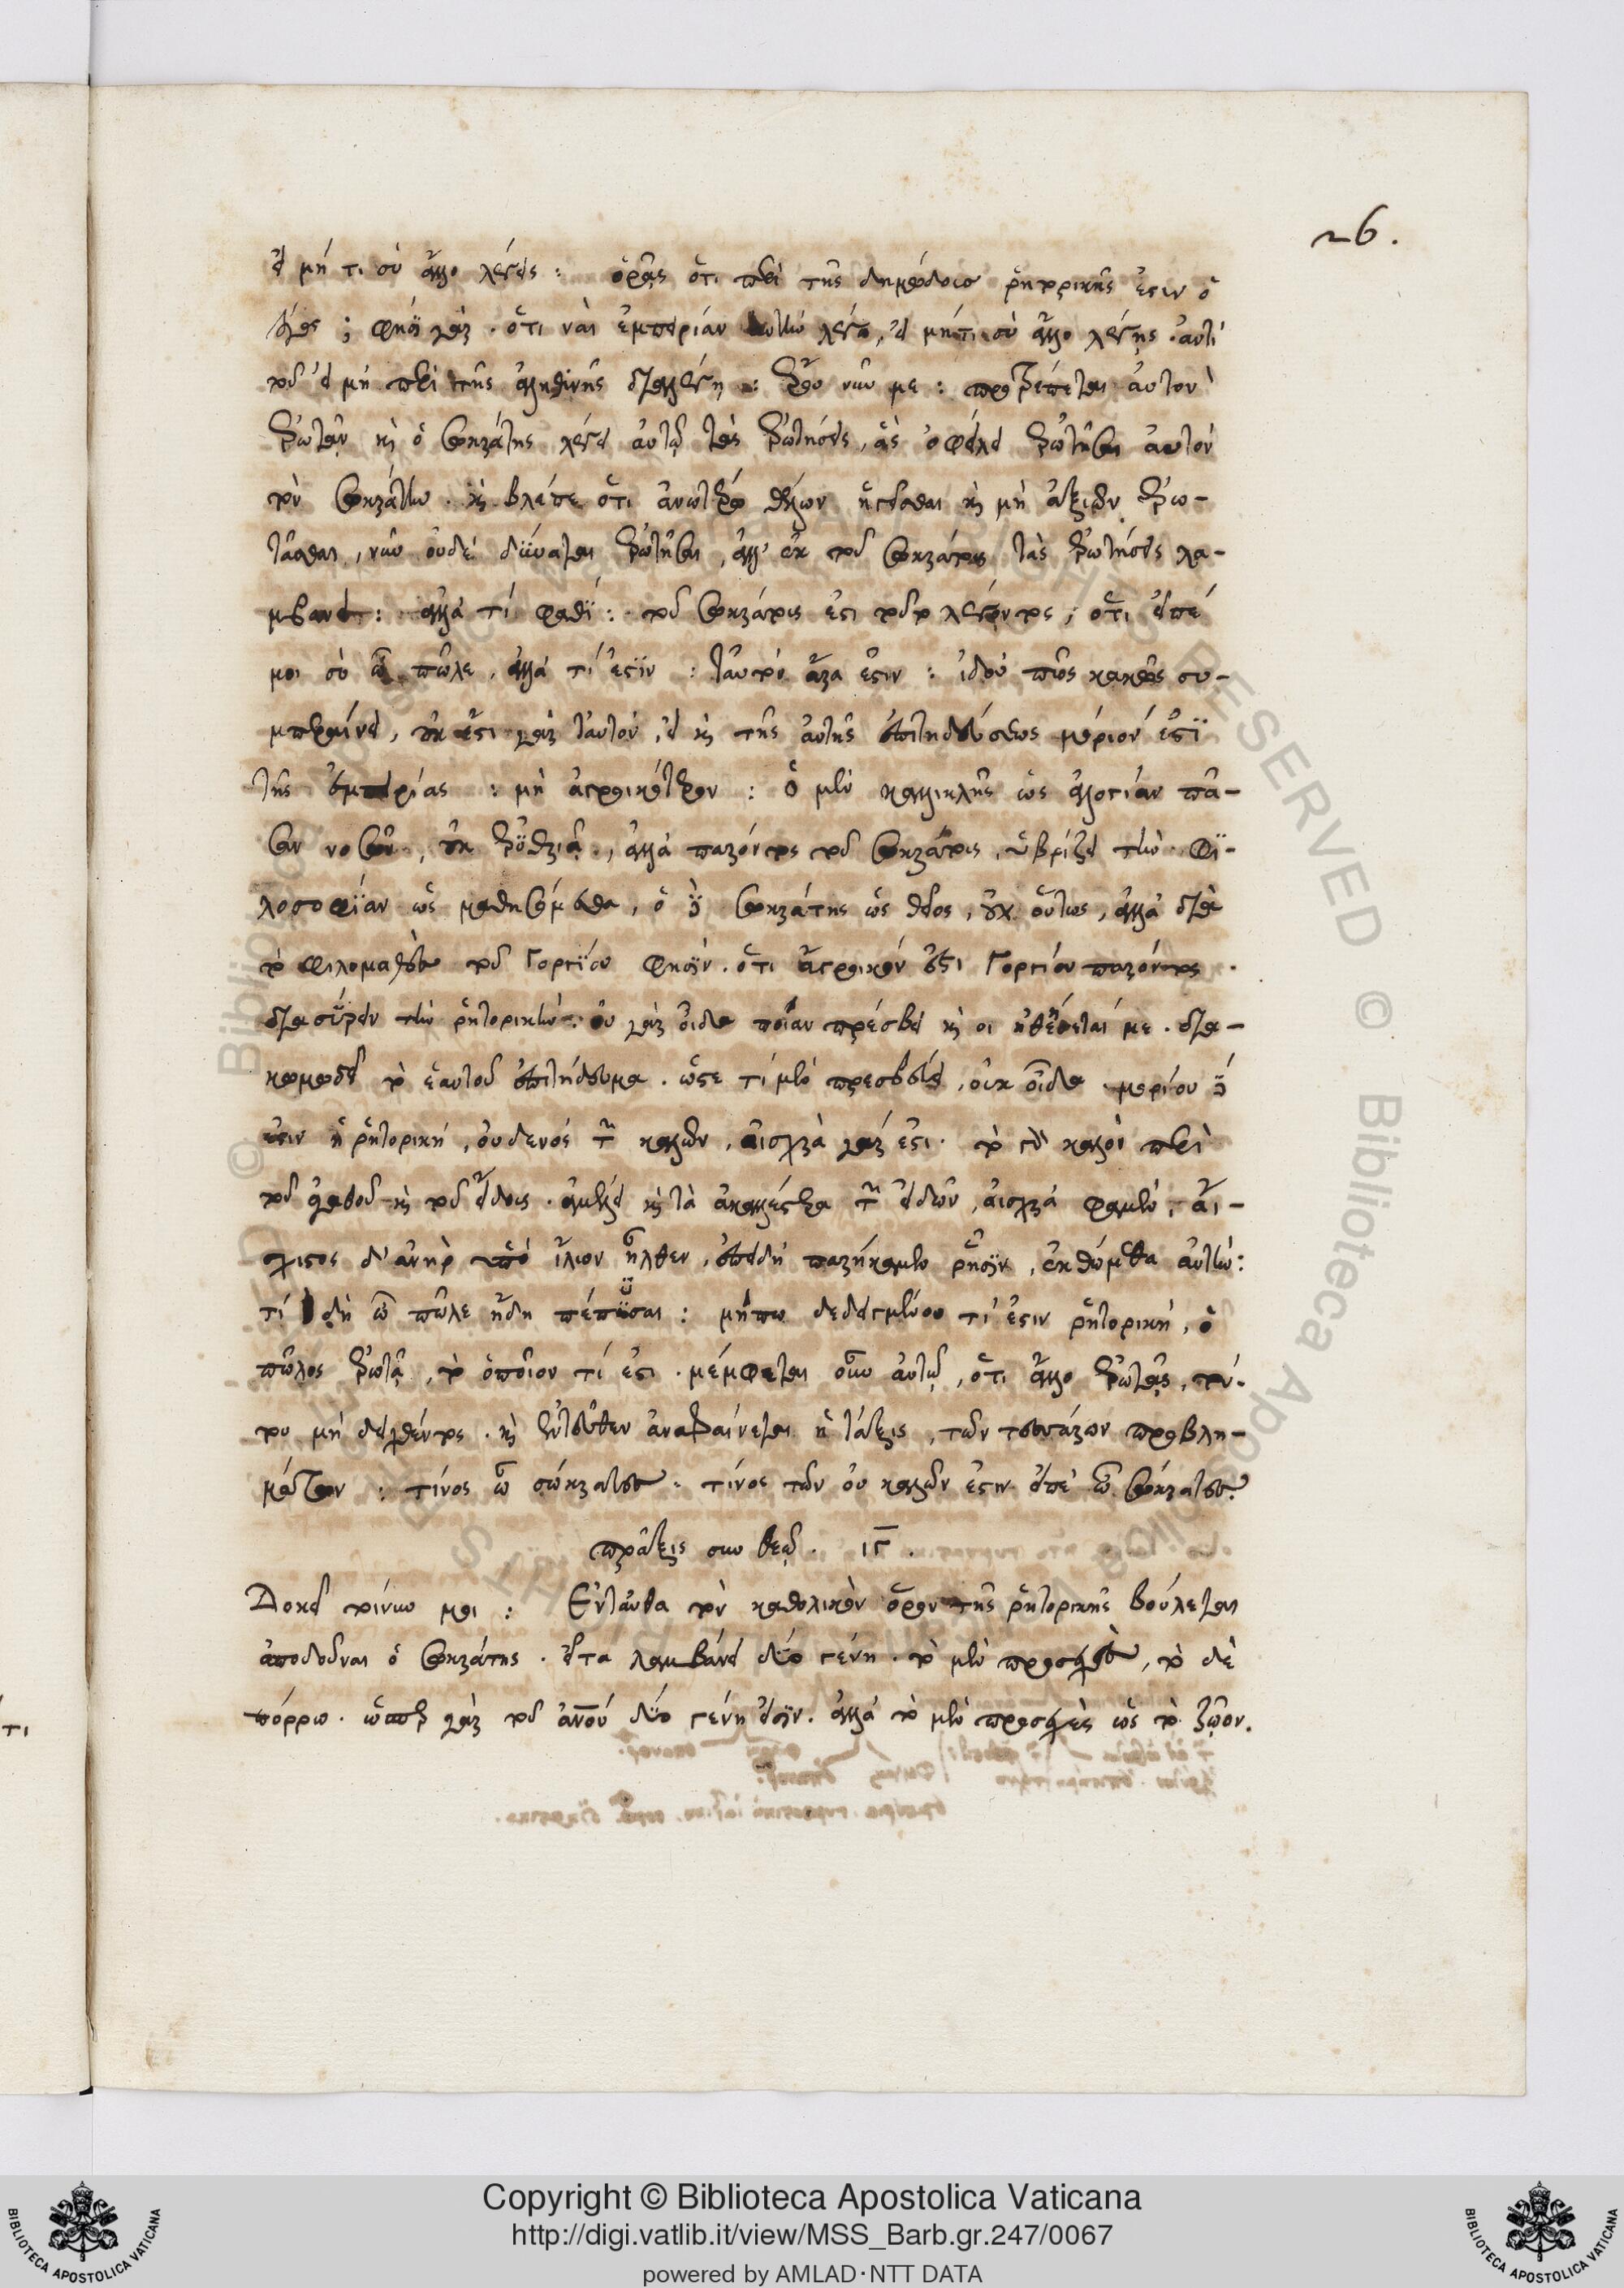 26.
εἰ μή τι σὺ ἄλλο λέγεις : ὁρᾷς ὅτι περὶ τῆς δημώδους ῥητορικῆς ἐστιν ὁ
λόγος ; φησὶ γὰρ . ὅτι ναὶ ἐμπειρίαν αὐτὴν λέγω, εἰ μή τι σὺ ἄλλο λέγῃς . ἀντὶ
τοῦ εἰ μὴ περὶ τῆς ἀληθινῆς διαλέγῃ : ἐροῦ νῦν με : προτρέπεται αὐτὸν
ἐρωτᾶν καὶ ὁ σωκράτης λέγει αὐτῷ τὰς ἐρωτήσεις, ἃς ὀφείλει ἐρωτῆσαι αὐτὸν
τὸν σωκράτην . καὶ βλέπε ὅτι ἀνωτέρω θέλων ἡγεῖσθαι καὶ μὴ ἀξιῶν ἐρω-
τᾶσθαι, νῦν οὐδὲ δύναται ἐρωτῆσαι, ἀλλ' ἐκ τοῦ σωκράτους τὰς ἐρωτήσεις λα-
μβάνει : ἀλλὰ τί φαθί : τοῦ σωκράτους ἐστὶ τοῦτο λέγοντος, ὅτι εἰπέ
μοι σὺ ὦ πῶλε, ἀλλὰ τί ἐστιν : ταυτὸν ἄρα ἐστιν : ἰδοὺ πῶς κακῶς συ-
μπεραίνει, οὐκ ἔστι γὰρ ταυτόν, εἰ καὶ τῆς αὐτῆς ἐπιτηδεύσεως μόριόν ἐστι
τῆς ἐμπειρίας : μὴ ἀγροικότερον : ὁ μὲν καλλικλῆς ὡς ἀλογίαν πᾶ-
σαν νοσῶν, οὐκ ἐρυθριᾷ, ἀλλὰ παρόντος τοῦ σωκράτους, ὑβρίζει τὴν φι-
λοσοφίαν ὡς μαθησόμεθα, ὁ δὲ σωκράτης ὡς θεῖος, οὐχ οὕτως, ἀλλὰ διὰ
τὸ φιλομαθὲς τοῦ Γοργίου φησὶν . ὅτι ἄγροικόν ἐστι Γοργίου παρόντος
διασύρειν τὴν ῥητορικήν : οὐ γὰρ οἶδα ποίαν πρέσβει καὶ οι ηθήσεταί με . δια-
κωμῳδεῖ τὸ ἑαυτοῦ ἐπιτήδευμα . ὥστε τί μὲν πρεσβεύει, οὐκ οἶδα μορίου δὲ
ἐστιν ἡ ῥητορικὴ, οὐδενὸς τῶν καλῶν, αἰσχρὰ γάρ ἐστι . τὸ γὰρ καλὸν περὶ
τοῦ ἀγαθοῦ καὶ τοῦ εἴδους . ἀμέλει καὶ τὰ ἀκαλλέστερα τῶν εἰδῶν, αἰσχρά φαμεν, αἴ-
σχιστος δ' ἀνὴρ ὑπὸ ἴλιον ἦλθεν, ἐπειδὴ παρήκαμεν ῥῆσιν, ἐκθώμεθα αὐτήν :
τί δὴ ὦ πῶλε ἤδη πέπυσαι : μήπω δεδειγμένου τί ἐστιν ῥητορικὴ, ὁ
πῶλος ἐρωτᾷ, τὸ ὁποῖον τί ἐστι . μέμφεται οὖν αὐτῷ, ὅτι ἄλλο ἐρωτᾷς, τού-
του μὴ δειχθέντος . καὶ ἐντεῦθεν ἀναφαίνεται ἡ τάξις, τῶν τεσσάρων προβλη-
μάτων : τίνος ὦ σώκρατες : τίνος τῶν οὐ καλῶν ἐστιν εἰπὲ ὦ σώκρατες.
πρᾶξις συν θεῷ . ιγ .
Δοκεῖ τοίνυν μοι : Ἐνταῦθα τὸν καθολικὸν ὅρον τῆς ῥητορικῆς βούλεται
ἀποδοῦναι ὁ σωκράτης . εἶτα λαμβάνει δύο γένη . τὸ μὲν προσεχὲς, τὸ δὲ
πόρρω . ὥσπερ γὰρ τοῦ ἀνου δύο γένη εἰσὶν . ἀλλὰ τὸ μὲν προσεχὲς ὡς τὸ ζῷον.
τι
© Biblioteca Apostolica Vaticana
ALL RIGHTS RESERVED
Copyright © Biblioteca Apostolica Vaticana
http://digi.vatlib.it/view/MSS_Barb.gr.247/0067
powered by AMLAD·NTT DATA
BIBLIOTECA APOSTOLICA VATICANA
BIBLIOTECA APOSTOLICA VATICANA